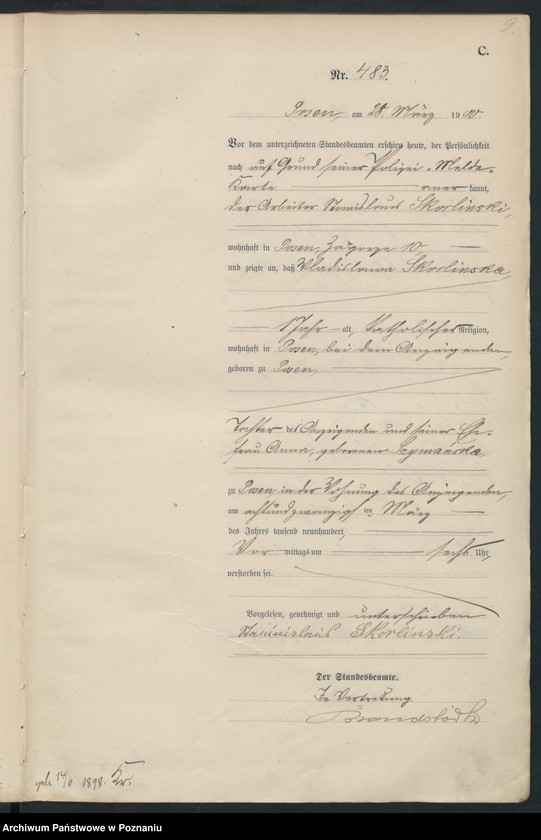 9.
C.
Nr. 483.
Posen, am 28. März 1900.
Vor dem unterzeichneten Standesbeamten erschien heute, der Persönlichkeit
nach auf Grund seiner Polizei-Melde-
Karte anerkannt,
der Arbeiter Stanislaus Skorlinski,
wohnhaft in Posen, Zagorze 10
und zeigte an, daß Vladislawa Skorlinska,
1 Jahr alt, katholischer Religion,
wohnhaft in Posen, bei dem Anzeigenden,
geboren zu Posen,
Tochter des Anzeigenden und seiner Ehe-
frau Anna, geborenen Szymanska
zu Posen, in der Wohnung des Anzeigenden,
am achtundzwanzigsten März
des Jahres tausend neunhundert,
Vor mittags um sechs Uhr,
verstorben sei.
Vorgelesen, genehmigt und unterschrieben
Stanislaus Skorlinski.
Der Standesbeamte.
In Vertretung.
geb. 14/6 1898. Kr.
Archiwum Państwowe w Poznaniu